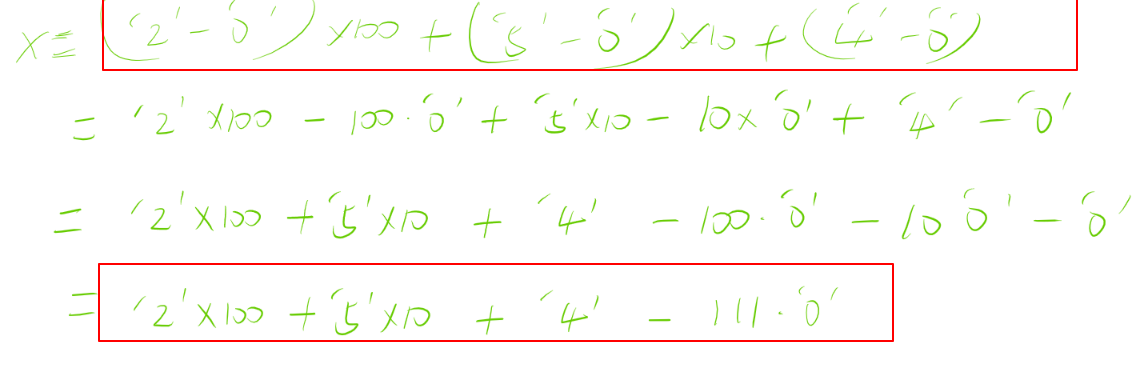 x = ('2' - '0') ×100 + ('5' - '0') ×10 + ('4' - '0')
= '2' ×100 - 100·'0' + '5'×10 - 10×'0' + '4' - '0'
= '2'×100 + '5'×10 + '4' - 100·'0' - 10 '0' - '0'
= '2'×100 + '5'×10 + '4' - 111·'0'